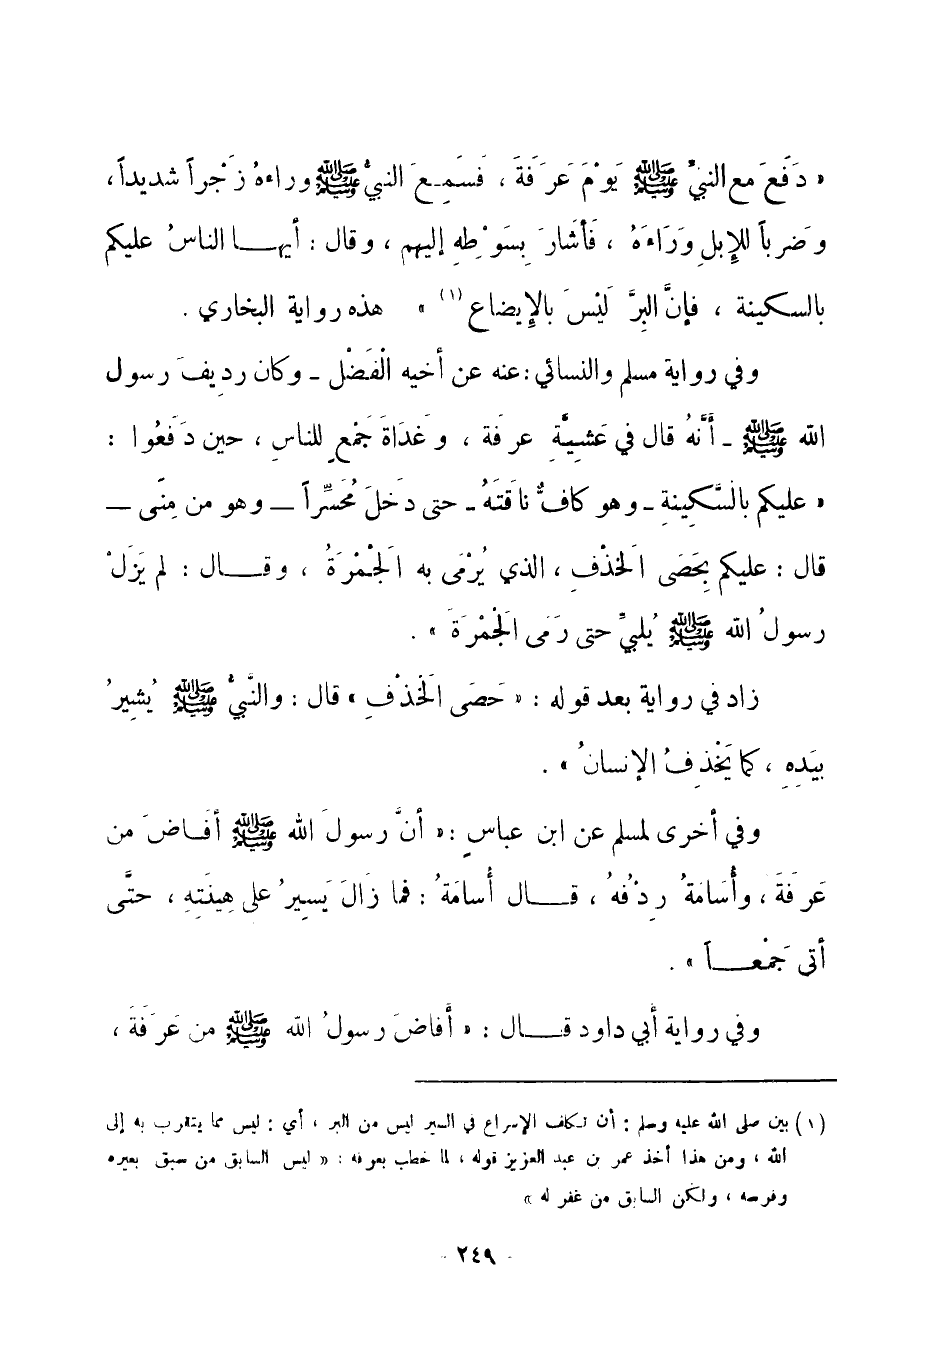 « دَفَعَ مع النبيِّ ﷺ يَوْمَ عَرَفَةَ ، فَسَمِعَ النبيُّ ﷺ وراءهُ زَجْراً شديداً ،
وضَرباً للإِبلِ وَرَاءَهُ ، فَأشَارَ بِسَوْطِهِ إليهم ، وقال : أيهـا الناسُ عليكم
بالسكينة ، فإنَّ البِرَّ لَيْسَ بالإِيضاع (١) » هذه رواية البخاري .
وفي رواية مسلم والنسائي : عنه عن أخيه الْفَضْل ـ وكان رديفَ رسول
الله ﷺ ـ أنَّهُ قال في عَشِيَّةِ عرفة ، وغَدَاةَ جَمْعٍ للناسِ ، حين دَفَعُوا :
« عليكم بالسَّكِينةِ ـ وهو كافٌّ نَاقَتَهُ ـ حتى دَخلَ مُحَسِّراً ـ وهو من مِنًى ـ
قال : عليكم بِحَصَى الخَذْفِ ، الذي يُرْمَى به الْجَمْرَةُ ، وقـال : لم يَزَلْ
رسولُ الله ﷺ يُلبيِّ حتى رَمَى الْجَمْرَةَ » .
زاد في رواية بعد قوله : « حَصَى الْخَذْفِ » قال : والنَّبيُّ ﷺ يُشِيرُ
بيَدِهِ ، كما يَخْذِفُ الإنسانُ » .
وفي أخرى لمسلم عن ابن عباسٍ : « أنَّ رسولَ الله ﷺ أفَـاضَ من
عَرَفَةَ ، وأُسَامَةُ رِدْفُهُ ، قـال أُسامَةُ : فما زَالَ يَسِيرُ على هِينَتِهِ ، حتَّى
أتى جَمْعـاً » .
وفي رواية أبي داود قـال : « أَفاضَ رسولُ الله ﷺ من عَرَفَةَ ،
(١) بين صلى الله عليه وسلم : أن تكلف الإسراع في السير ليس من البر ، أي : ليس مما يتقرب به إلى
الله ، ومن هذا أخذ عمر بن عبد العزيز قوله ، لما خطب بعرفة : « ليس السابق من سبق بعيره
وفرسه ، ولكن السابق من غفر له »
- ٢٤٩ -